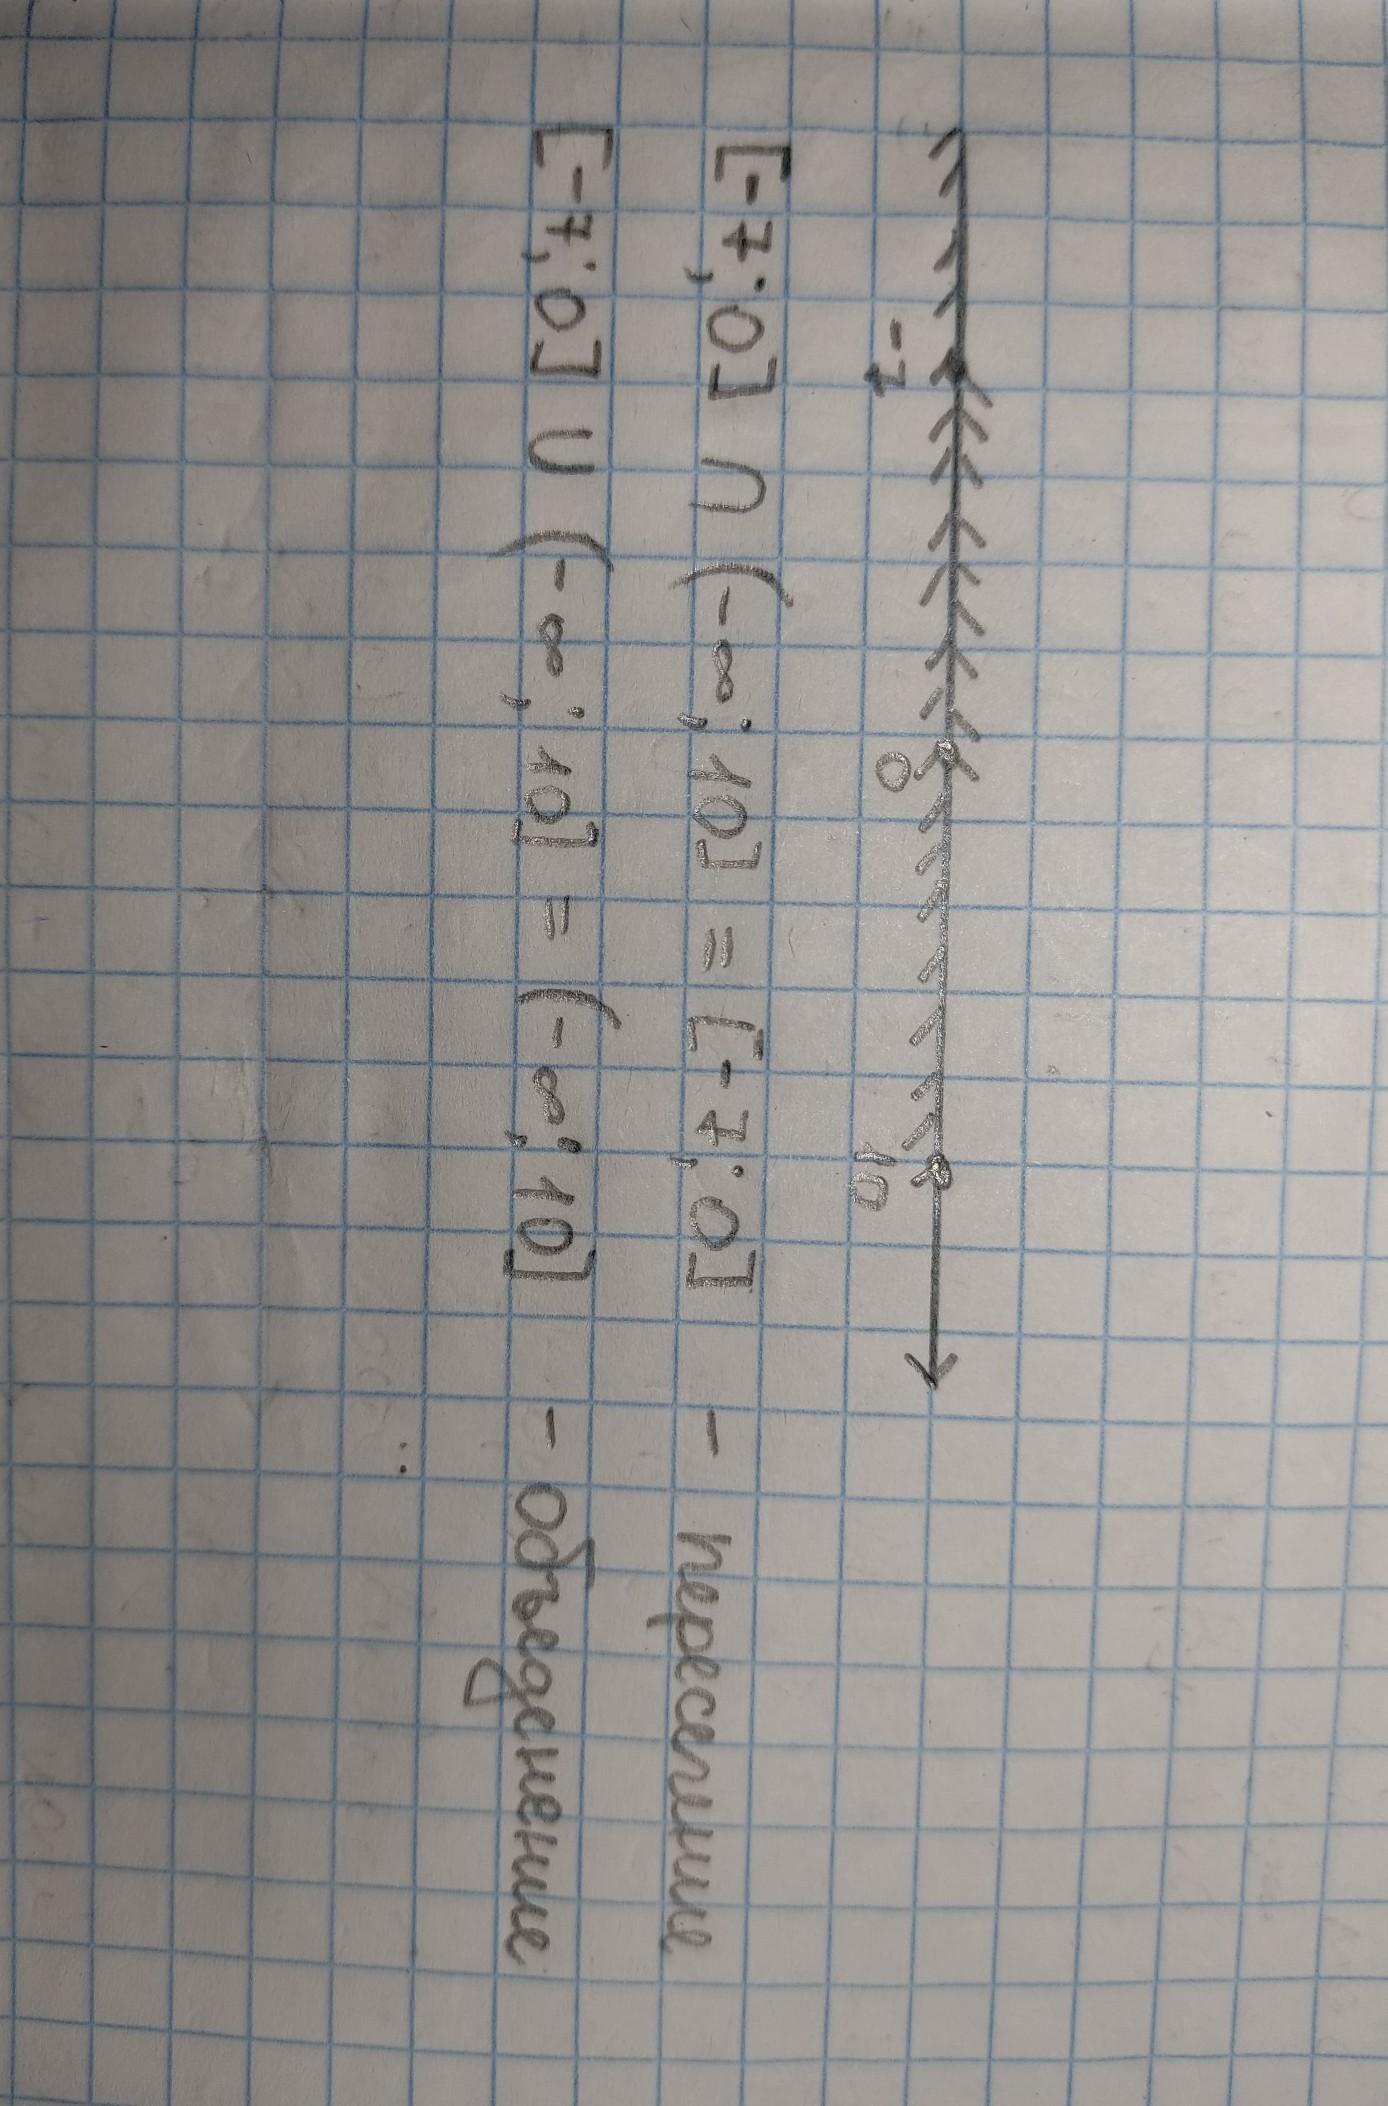 -7 0 10
[-7; 0] ∩ (-∞; 10] = [-7; 0] - пересечние
[-7; 0] ∪ (-∞; 10] = (-∞; 10] - объеденение